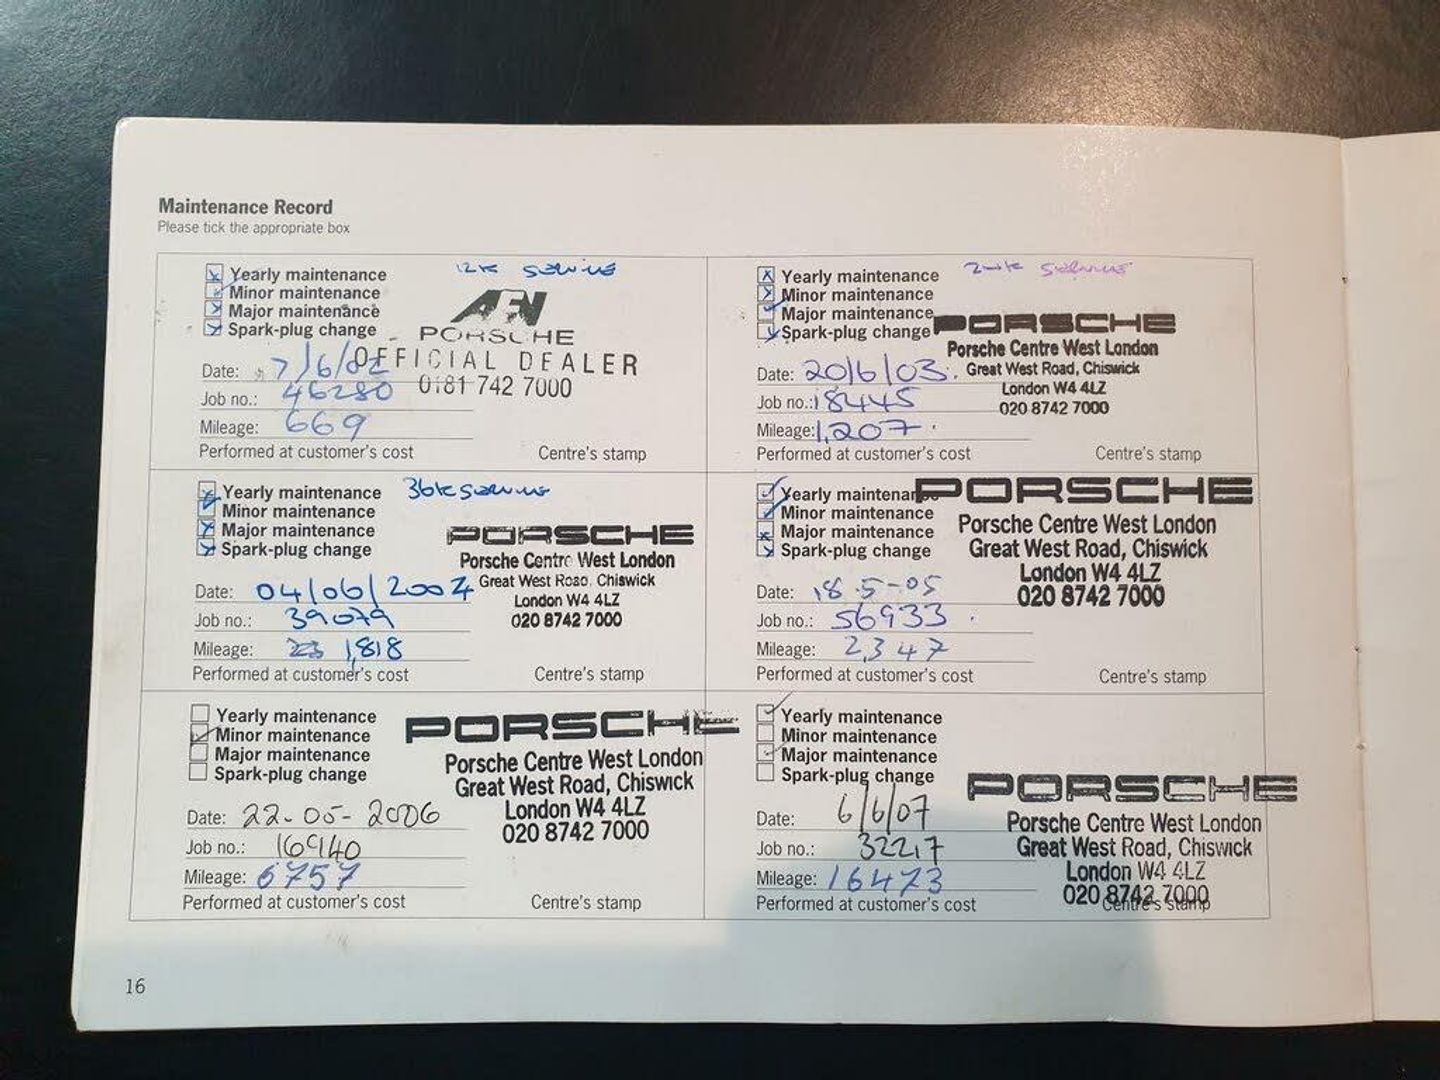 Maintenance Record
Please tick the appropriate box
Yearly maintenance
12k service
Minor maintenance
Major maintenance
Spark-plug change
AFN
PORSCHE
OFFICIAL DEALER
0181 742 7000
Date: 7/6/02
Job no.: 46280
Mileage: 669
Performed at customer's cost
Centre's stamp
Yearly maintenance
service
Minor maintenance
Major maintenance
Spark-plug change
PORSCHE
Porsche Centre West London
Great West Road, Chiswick
London W4 4LZ
020 8742 7000
Date: 20/6/03.
Job no.: 18445
Mileage: 1,207
Performed at customer's cost
Centre's stamp
Yearly maintenance
36k service
Minor maintenance
Major maintenance
Spark-plug change
PORSCHE
Porsche Centre West London
Great West Road, Chiswick
London W4 4LZ
020 8742 7000
Date: 04/06/2004
Job no.: 39079
Mileage: 1,818
Performed at customer's cost
Centre's stamp
Yearly maintenance
Minor maintenance
Major maintenance
Spark-plug change
PORSCHE
Porsche Centre West London
Great West Road, Chiswick
London W4 4LZ
020 8742 7000
Date: 18.5-05
Job no.: 56933
Mileage: 2,347
Performed at customer's cost
Centre's stamp
Yearly maintenance
Minor maintenance
Major maintenance
Spark-plug change
PORSCHE
Porsche Centre West London
Great West Road, Chiswick
London W4 4LZ
020 8742 7000
Date: 22-05-2006
Job no.: 16940
Mileage: 6757
Performed at customer's cost
Centre's stamp
Yearly maintenance
Minor maintenance
Major maintenance
Spark-plug change
PORSCHE
Porsche Centre West London
Great West Road, Chiswick
London W4 4LZ
020 8742 7000
Date: 6/6/07
Job no.: 32217
Mileage: 16473
Performed at customer's cost
Centre's stamp
16